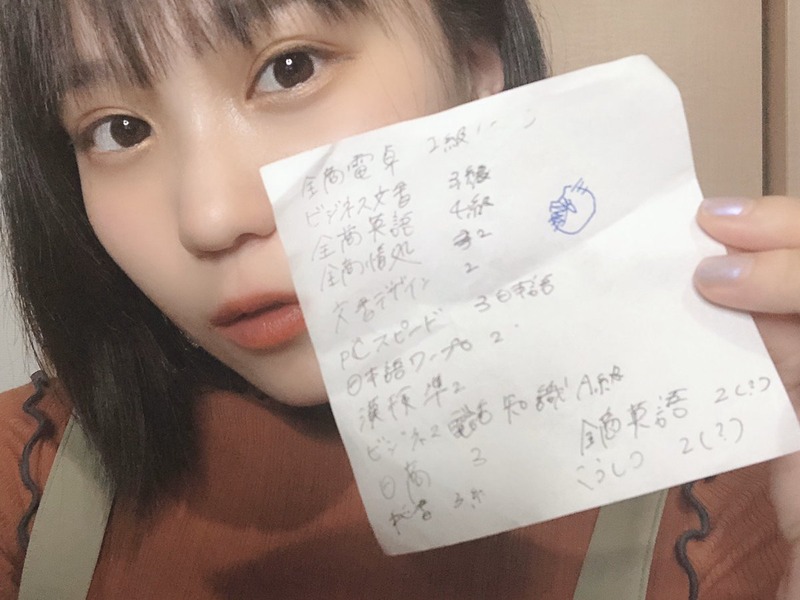 全商電卓 2級
ビジネス文書 3級
全商英語 4級
全商情処 2
文書デザイン 2
PCスピード 3 日本語
日本語ワープロ 2
漢検 準2
ビジネス電話知識 A級
日商 3
秘書 3級
全商英語 2(?)
こうしつ 2(?)